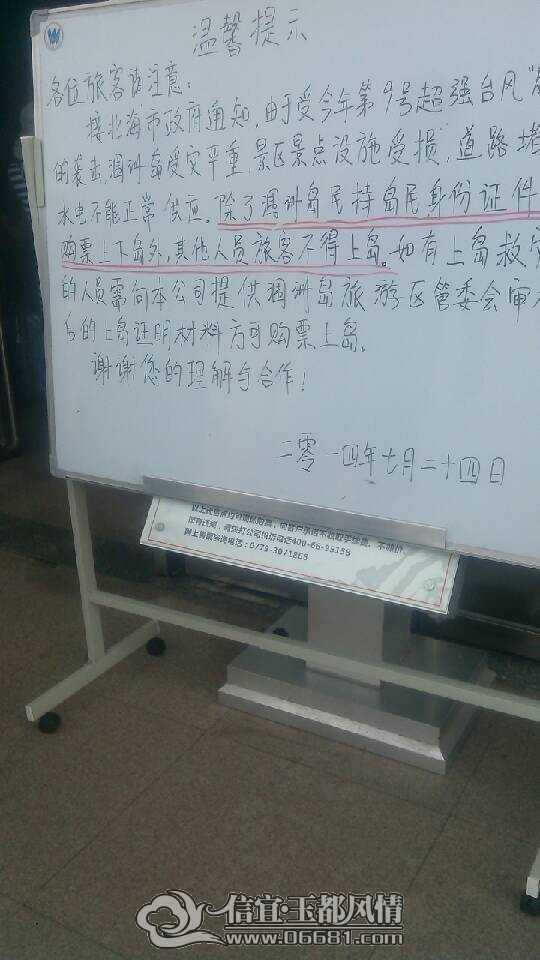 温馨提示
各位旅客请注意：
接北海市政府通知，由于受今年第9号超强台风"
的袭击，涠洲岛受灾严重，景区景点设施受损，道路堵
水电不能正常供应。除了涠洲岛民持岛民身份证件
购票上下岛外，其他人员旅客不得上岛。如有上岛救灾
的人员需向本公司提供涠洲岛旅游区管委会审
的上岛证明材料方可购票上岛。
谢谢您的理解与合作！
二零一四年七月二十四日
信宜·玉都风情
www.06681.com